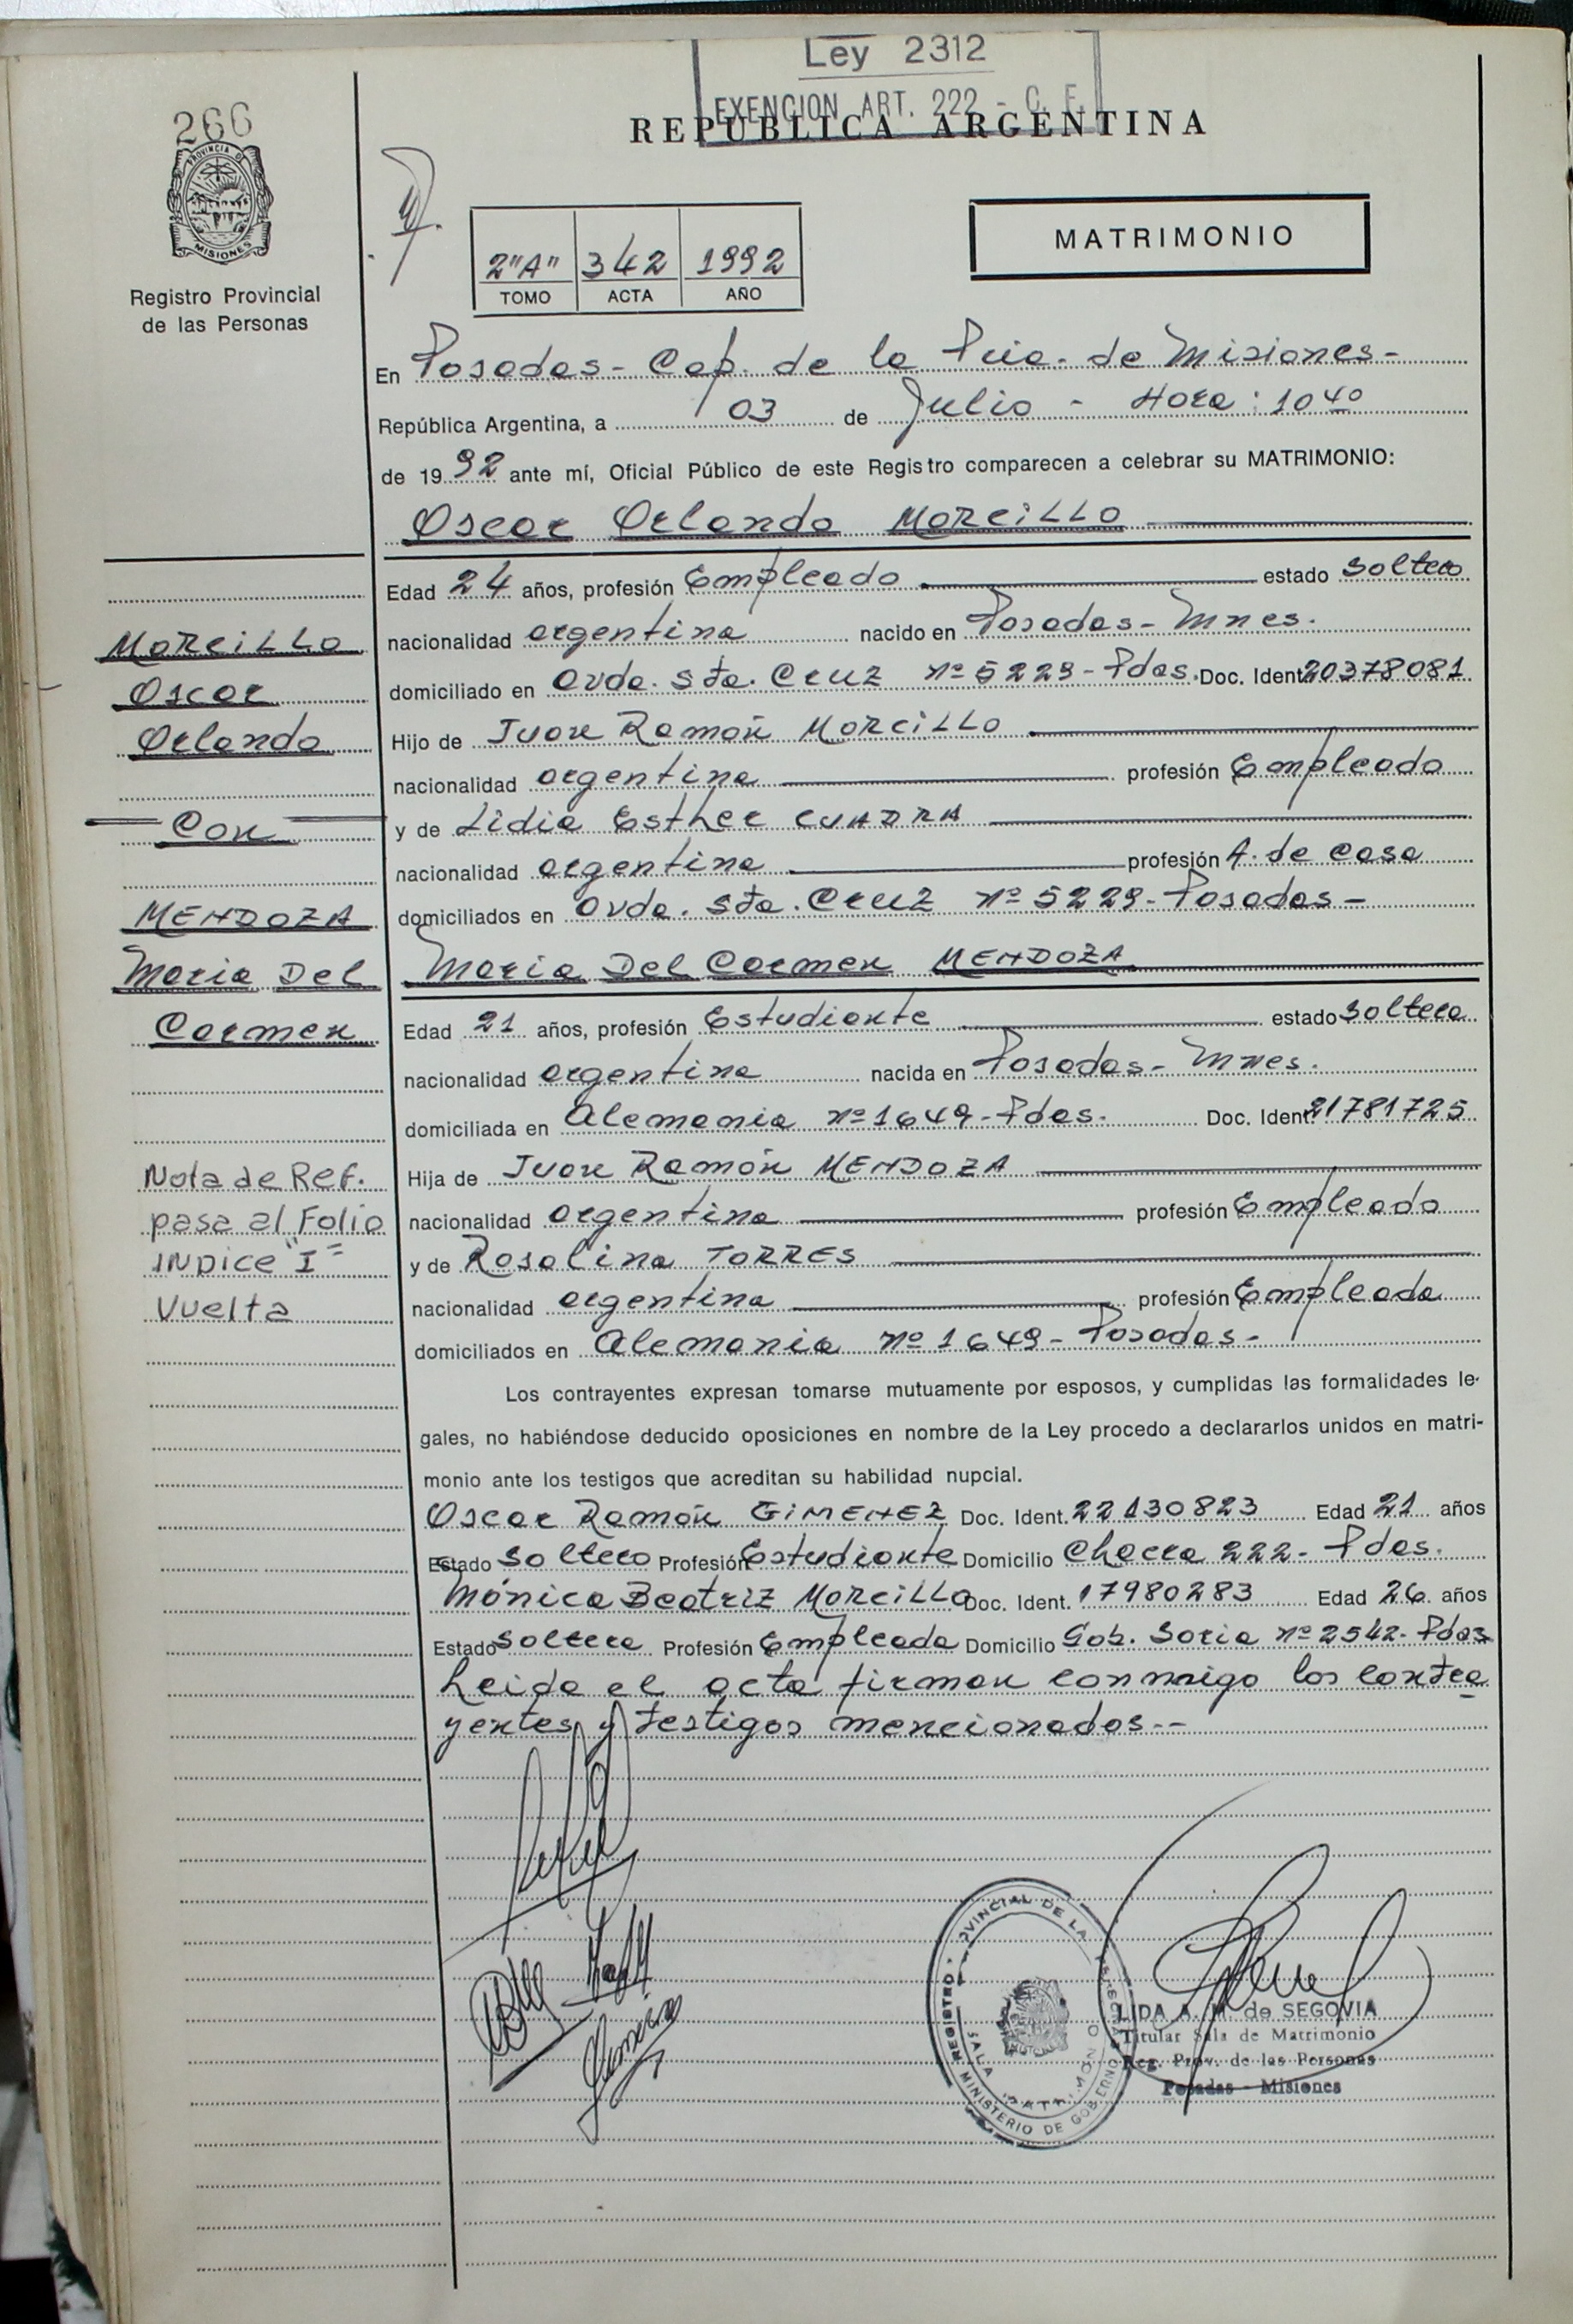 Ley 2312
EXENCION ART. 222 - C. F.
REPUBLICA ARGENTINA
266
PROVINCIA DE
MISIONES
Registro Provincial
de las Personas
MATRIMONIO
2"A" 342 1992
TOMO ACTA AÑO
En Posadas - Cap. de la Pcia. de Misiones -
República Argentina, a 03 de Julio - Hora: 10 40
de 1992 ante mí, Oficial Público de este Registro comparecen a celebrar su MATRIMONIO:
Oscar Orlando MORCILLO
Edad 24 años, profesión Empleado estado soltero
nacionalidad argentina nacido en Posadas - Mnes.
domiciliado en Avda. Sta. Cruz nº 5229 - Pdas. Doc. Ident. 20378081
Hijo de Juan Ramón MORCILLO
nacionalidad argentina profesión Empleado
y de Lidia Esther CUADRA
nacionalidad argentina profesión A. de casa
domiciliados en Avda. Sta. Cruz nº 5229 - Posadas -
María Del Carmen MENDOZA
Edad 21 años, profesión Estudiante estado soltera
nacionalidad argentina nacida en Posadas - Mnes.
domiciliada en Alemania nº 1649 - Pdas. Doc. Ident. 21781725
Hija de Juan Ramón MENDOZA
nacionalidad argentina profesión Empleado
y de Rosalina TORRES
nacionalidad argentina profesión Empleada
domiciliados en Alemania nº 1649 - Posadas -
Los contrayentes expresan tomarse mutuamente por esposos, y cumplidas las formalidades le-
gales, no habiéndose deducido oposiciones en nombre de la Ley procedo a declararlos unidos en matri-
monio ante los testigos que acreditan su habilidad nupcial.
Oscar Ramón GIMENEZ Doc. Ident. 22130823 Edad 21 años
Estado soltero Profesión Estudiante Domicilio Chacra 222 - Pdas.
Mónica Beatriz MORCILLO Doc. Ident. 17980283 Edad 26 años
Estado soltera Profesión Empleada Domicilio Gob. Soria nº 2542 - Pdas
Leida el acta firman conmigo los contra
yentes y testigos mencionados.--
MORCILLO
Oscar
Orlando
Con
MENDOZA
María Del
Carmen
Nota de Ref.
pasa al Folio
INDICE "I"
Vuelta
REGISTRO PROVINCIAL DE LAS PERSONAS
SALA MATRIMONIO
MINISTERIO DE GOBIERNO
LIDA A. M. de SEGOVIA
Titular Sala de Matrimonio
Reg. Prov. de las Personas
Posadas - Misiones